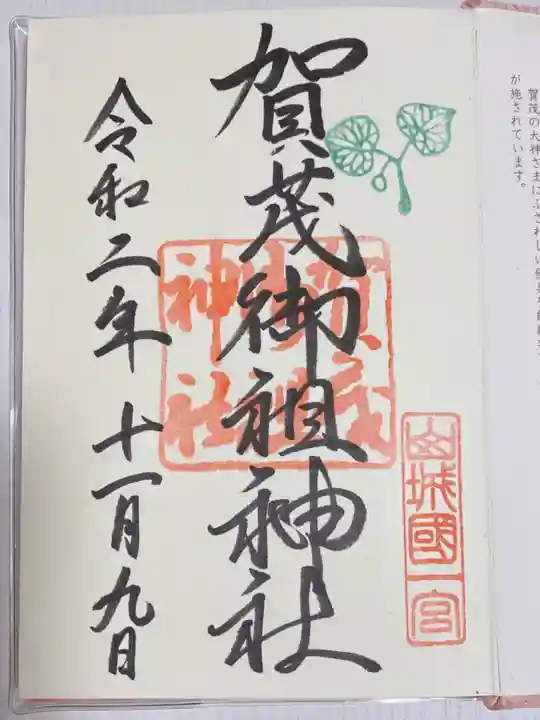 賀茂の大神さまにふさわしい
が施されています。
山城國一宮
賀茂御祖神社
賀茂御祖神社
令和二年十一月九日